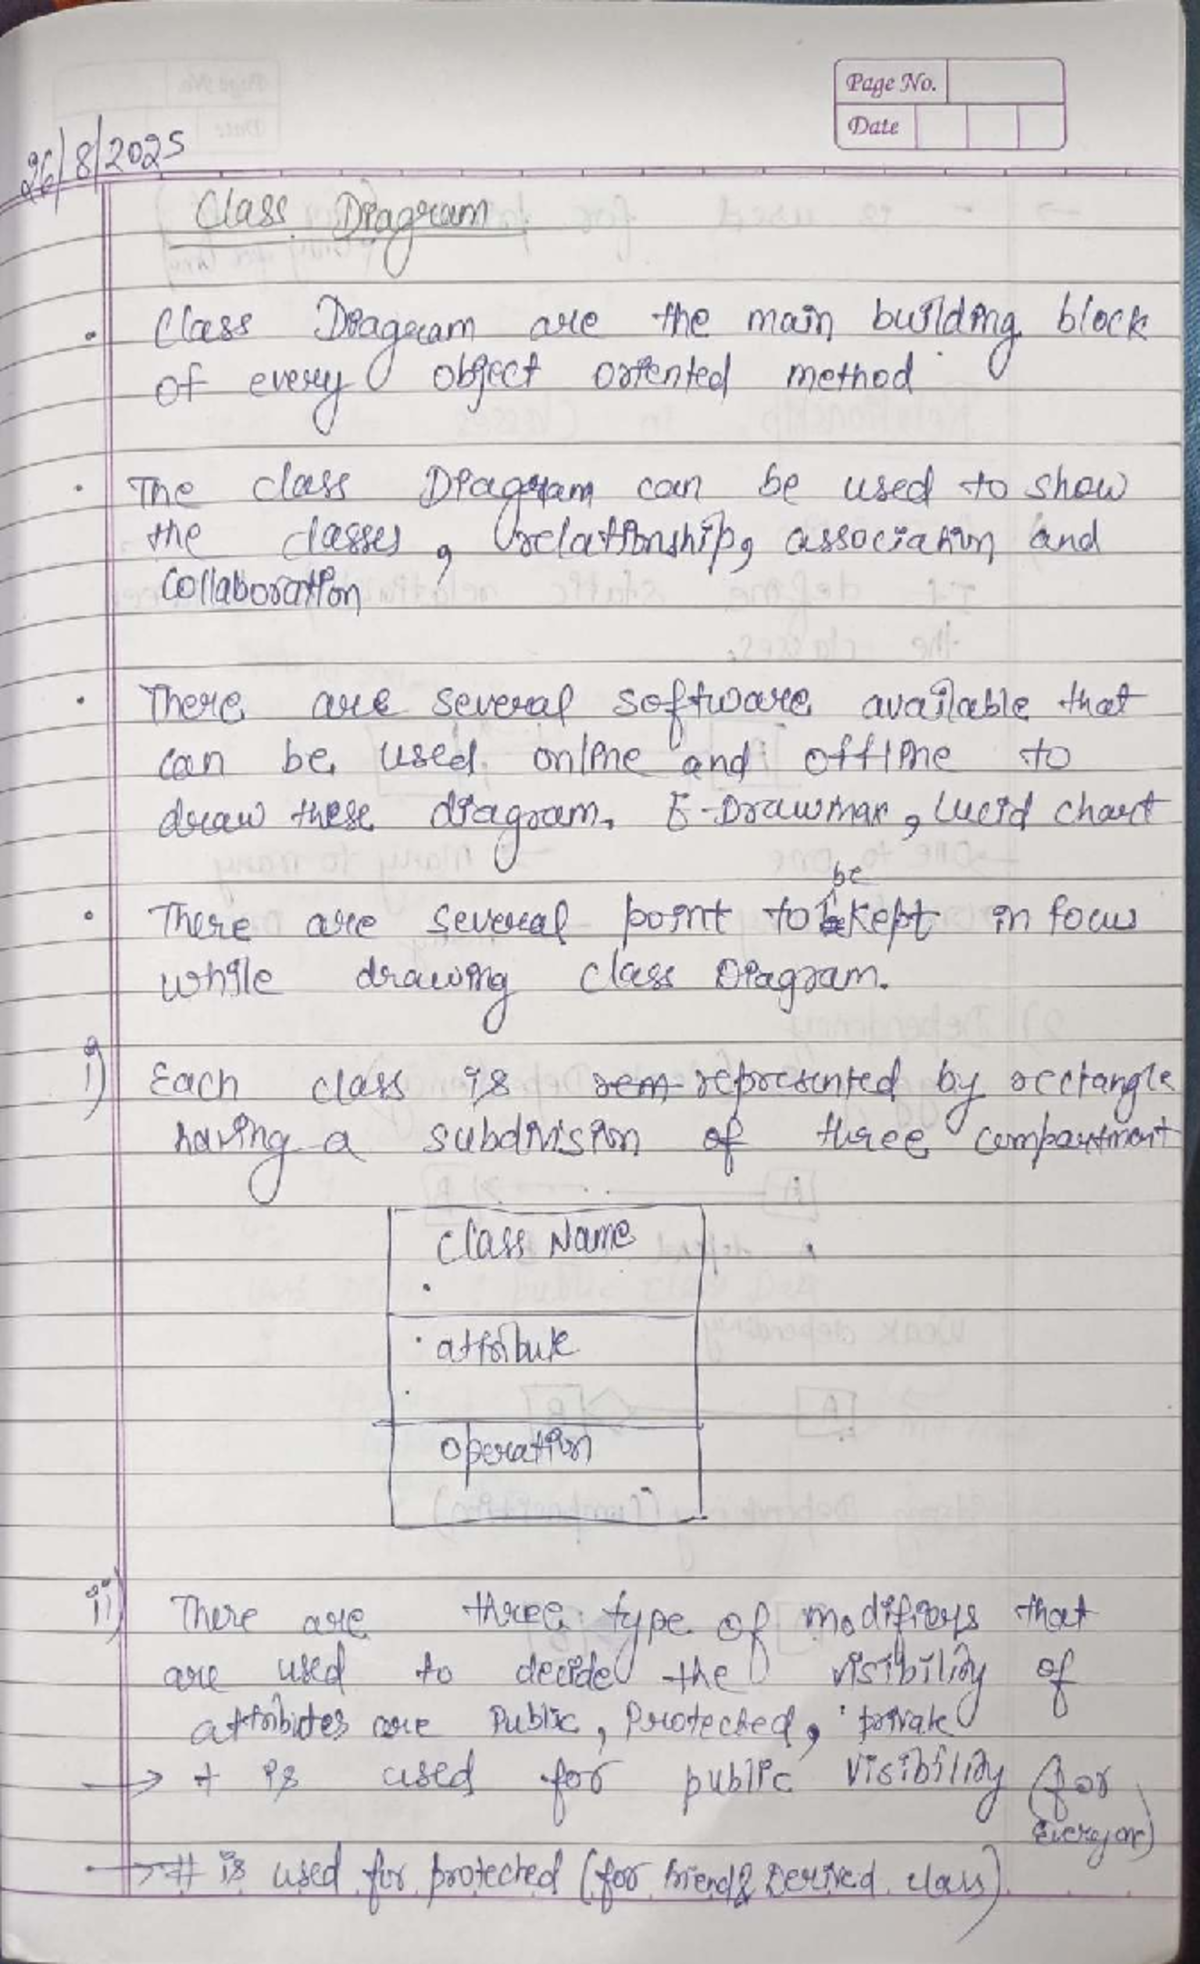 Page No.
Date
26/8/2025
Class Diagram
• Class Diagram are the main building block
of every object oriented method
• The class Diagram can be used to show
the classes, relationship, association and
collaboration
• There are several software available that
can be used online and offline to
draw these diagram. E-Drawmax, Lucid chart
be
• There are several point to kept in focus
while drawing class Diagram.
i) Each class is represented by rectangle
having a subdivision of three compartment
Class Name
attribute
operation
ii) There are three type of modifiers that
are used to decide the visibility of
attributes are Public, Protected, private
→ + is used for public visibility (for
Everyone)
→ # is used for protected (for friend & Derived class)